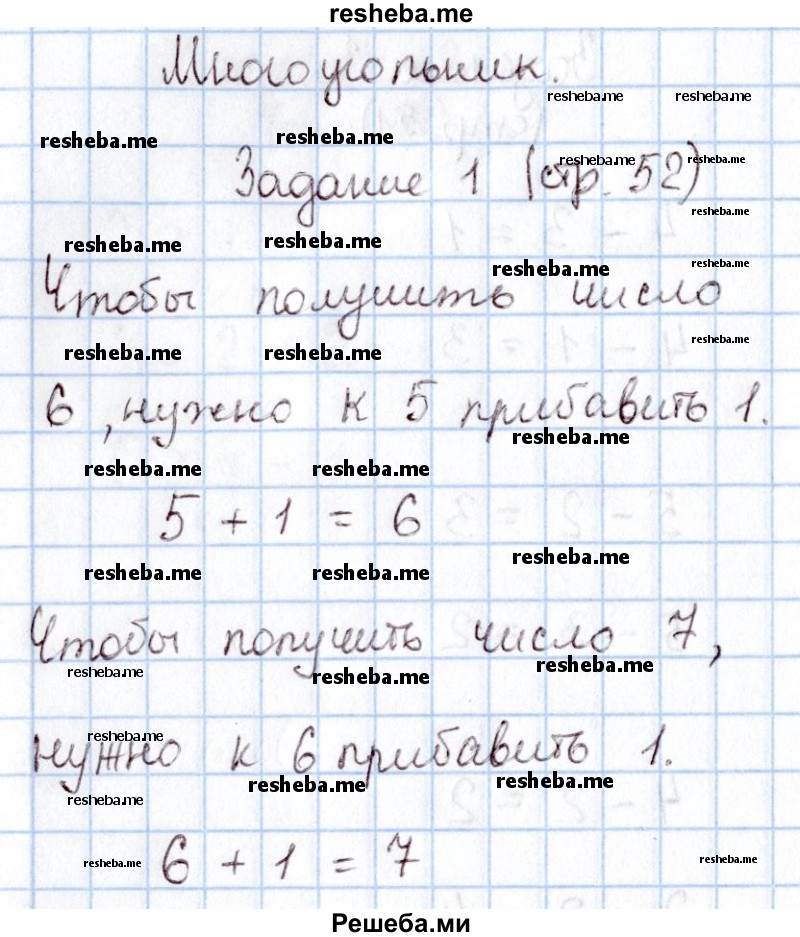 resheba.me
Многоугольник.
resheba.me resheba.me
resheba.me resheba.me
resheba.me resheba.me
Задание 1 (стр. 52)
resheba.me
resheba.me resheba.me
resheba.me resheba.me
Чтобы получить число
resheba.me
resheba.me resheba.me
6, нужно к 5 прибавить 1.
resheba.me
resheba.me resheba.me
5 + 1 = 6
resheba.me
resheba.me resheba.me
Чтобы получить число 7,
resheba.me
resheba.me resheba.me
resheba.me
нужно к 6 прибавить 1.
resheba.me resheba.me
resheba.me
resheba.me resheba.me
6 + 1 = 7
Решеба.ми